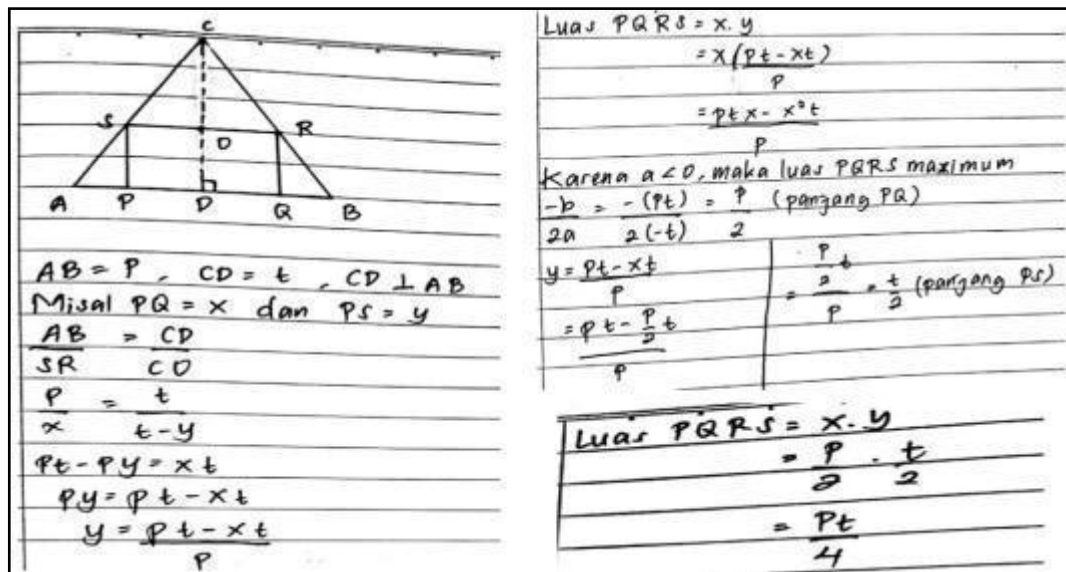 C
S
O
R
A
P
D
Q
B
AB = P, CD = t, CD ⊥ AB
Misal PQ = x dan PS = y
AB/SR = CD/CO
P/x = t/(t-y)
Pt - Py = xt
Py = pt - xt
y = (pt - xt)/P
Luas PQRS = x.y
= x(pt - xt)/P
= (ptx - x²t)/P
Karena a < 0, maka luas PQRS maximum
-b/2a = -(Pt)/2(-t) = P/2 (panjang PQ)
y = (pt - xt)/P
= (pt - P/2 t)/P
= (P/2 t)/P = t/2 (panjang PS)
Luas PQRS = x.y
= P/2 . t/2
= Pt/4